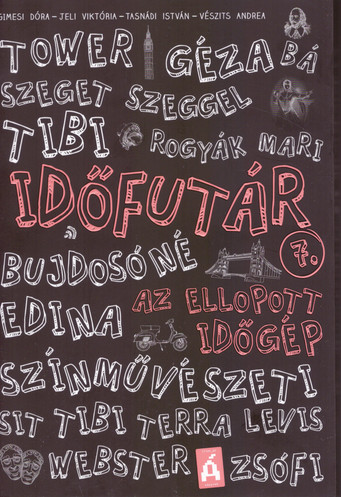 GIMESI DÓRA – JELI VIKTÓRIA – TASNÁDI ISTVÁN – VÉSZITS ANDREA
TOWER GÉZA BÁ
SZEGET SZEGGEL
TIBI ROGYÁK MARI
IDŐFUTÁR
7.
BUJDOSÓNÉ
EDINA AZ ELLOPOTT
IDŐGÉP
SZÍNMŰVÉSZETI
SIT TIBI TERRA LEVIS
WEBSTER Á ZSÓFI